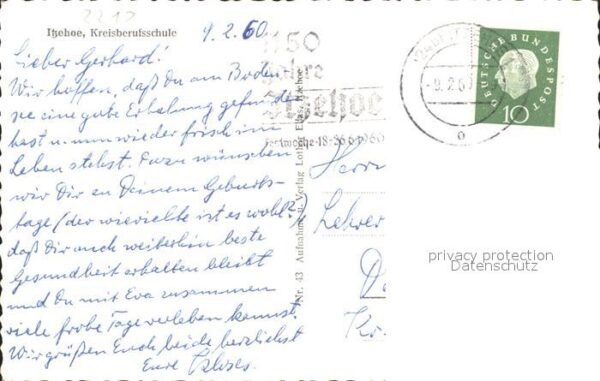 Itzehoe, Kreisberufsschule
9.2.60
Lieber Gerhard!
Wir hoffen, daß Du am Boden
see eine gute Erholung gefunden
hast u. nun wieder frisch im
Leben stehst. Dazu wünschen
wir Dir zu Deinem Geburts-
tage (der wievielte ist es wohl?)
daß Dir auch weiterhin beste
Gesundheit erhalten bleibt
und Du mit Eva zusammen
viele frohe Tage verleben kannst.
Wir grüßen Euch beide herzlichst
Eure
Nr. 43 Aufnahme u. Verlag Lothar Elias, Itzehoe
1150
Jahre
Itzehoe
Festwoche 18.-26.6.1960
-9.2.60
DEUTSCHE BUNDESPOST
10
Herrn
Lehrer
Kr.
privacy protection
Datenschutz